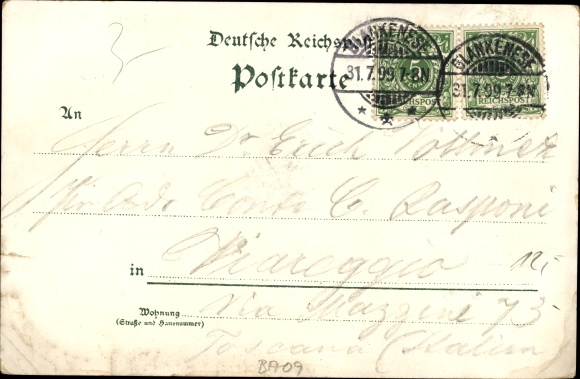 3-
Deutsche Reichspost
Postkarte
BLANKENESE
31.7.99.7-8N
REICHSPOST
BLANKENESE
31.7.99.7-8N
REICHSPOST
An
Herrn Dr Erich
Conte C. Rasponi
in Viareggio 12,-
Wohnung
(Straße und Hausnummer)
Via Mazzini 73
Toscana (Italien
BA09